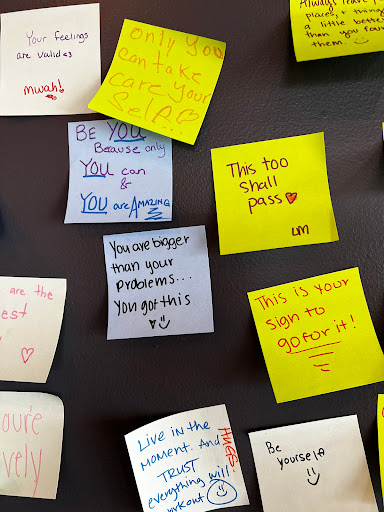 Your feelings
are valid <3
mwah!
only you
can take
care your
self...
Always leave
places, + things
a little better
than you found
them.
BE YOU
Because only
YOU can
&
YOU are AMAZING
This too
shall
pass ♡
UM
You are bigger
than your
problems...
You got this
♡ :)
are the
est
♡
This is your
sign to
go for it!
ou're
vely
Live in the
MOMENT. And
TRUST
everything will
workout :)
HUGS
Be
yourself
:)